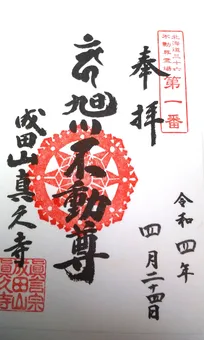 北海道三十六
不動尊霊場
第一番
奉拝
令和四年
四月二十四日
旭川不動尊
成田山真久寺
真言宗
成田山
真久寺